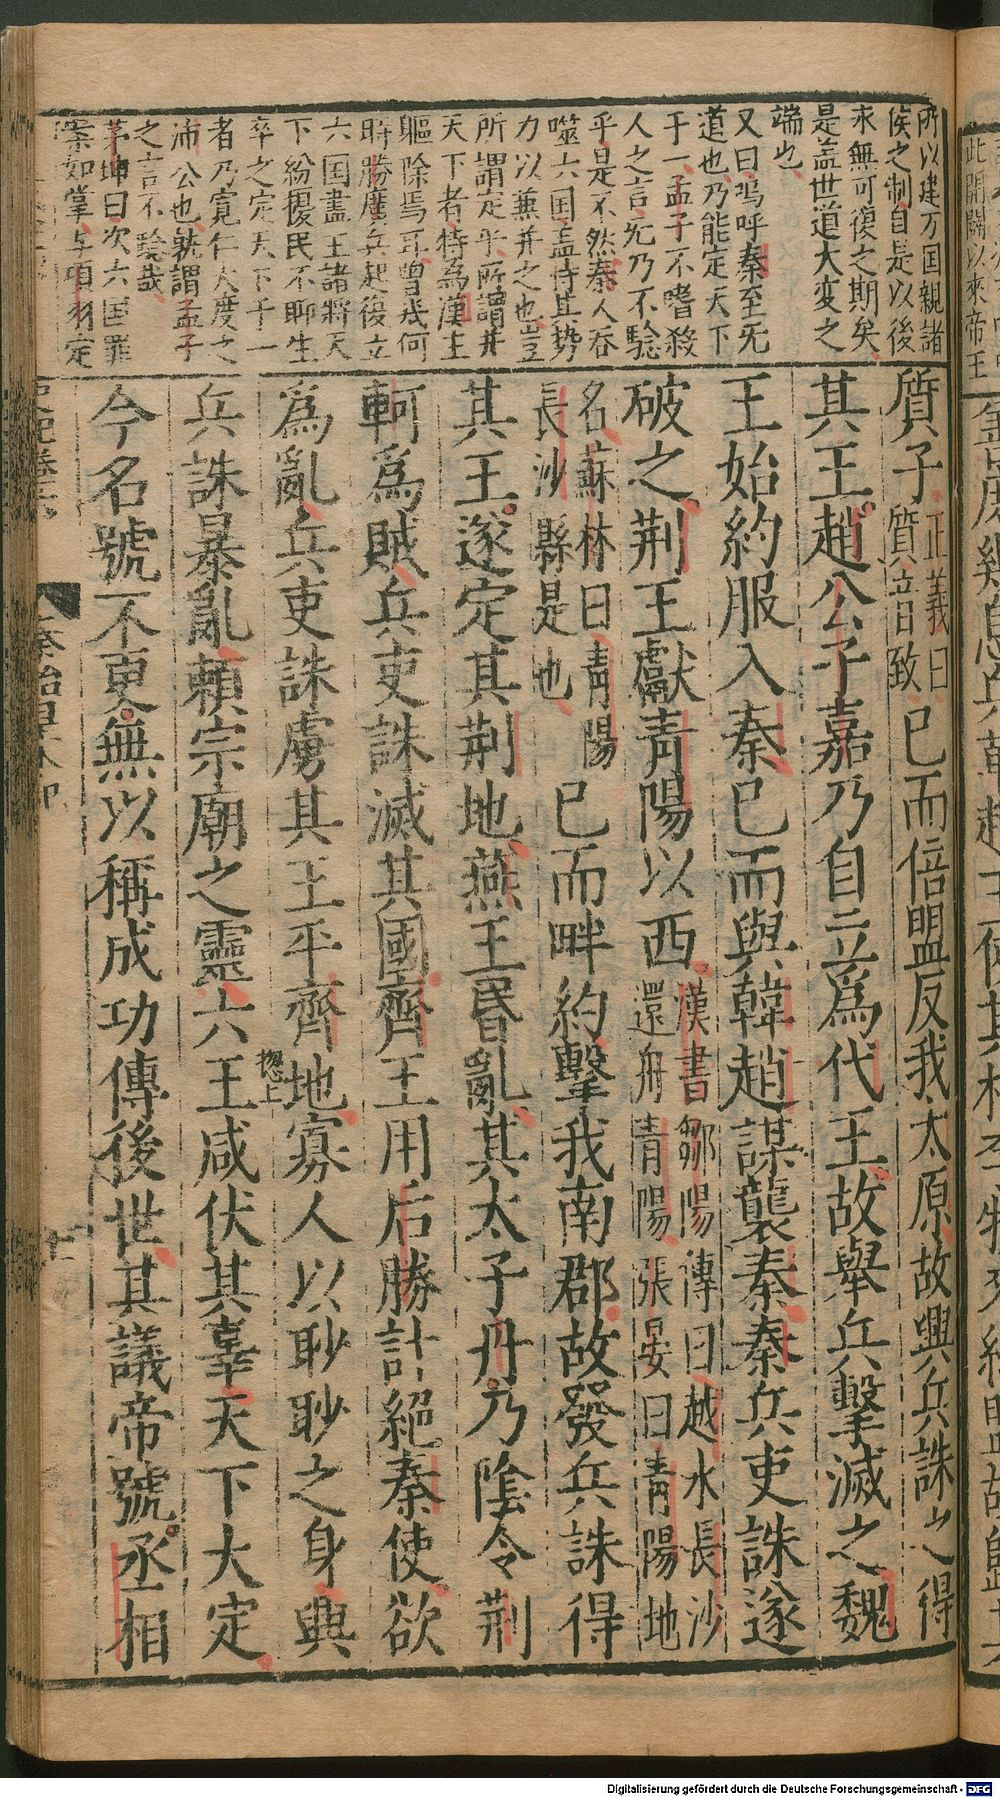 所以建万国親諸
侯之制自是以後
求無可復之期矣
是盖世道大変之
端也
又曰嗚呼秦至旡
道也乃能定天下
于一孟子不嗜殺
人之言旡乃不騐
乎是不然秦人吞
噬六国盖恃其勢
力以兼并之也豈
所謂定乎所謂并
天下者特為漢王
驅除焉耳曽幾何
時勝廣兵起後立
六国盡王諸將天
下紛擾民不聊生
卒之定天下于一
者乃寛仁大度之
沛公也孰謂孟子
之言不騐哉
茅坤曰次六国罪
案如掌与項羽定
質子正義曰
質音致已而倍盟反我太原故興兵誅之得
其王趙公子嘉乃自立爲代王故舉兵擊滅之魏
王始約服入秦已而與韓趙謀襲秦秦兵吏誅遂
破之荆王獻青陽以西漢書鄒陽傳曰越水長沙
還舟青陽張晏曰青陽地
名蘇林曰青陽
長沙縣是也已而畔約擊我南郡故發兵誅得
其王遂定其荆地燕王昏亂其太子丹乃陰令荆
軻爲賊兵吏誅滅其國齊王用后勝計絕秦使欲
爲亂兵吏誅虜其王平齊地寡人以眇眇之身興
揔上
兵誅暴亂頼宗廟之靈六王咸伏其辜天下大定
今名號不更無以稱成功傳後世其議帝號丞相
史記卷六
秦始皇本
十一
Digitalisierung gefördert durch die Deutsche Forschungsgemeinschaft - DFG